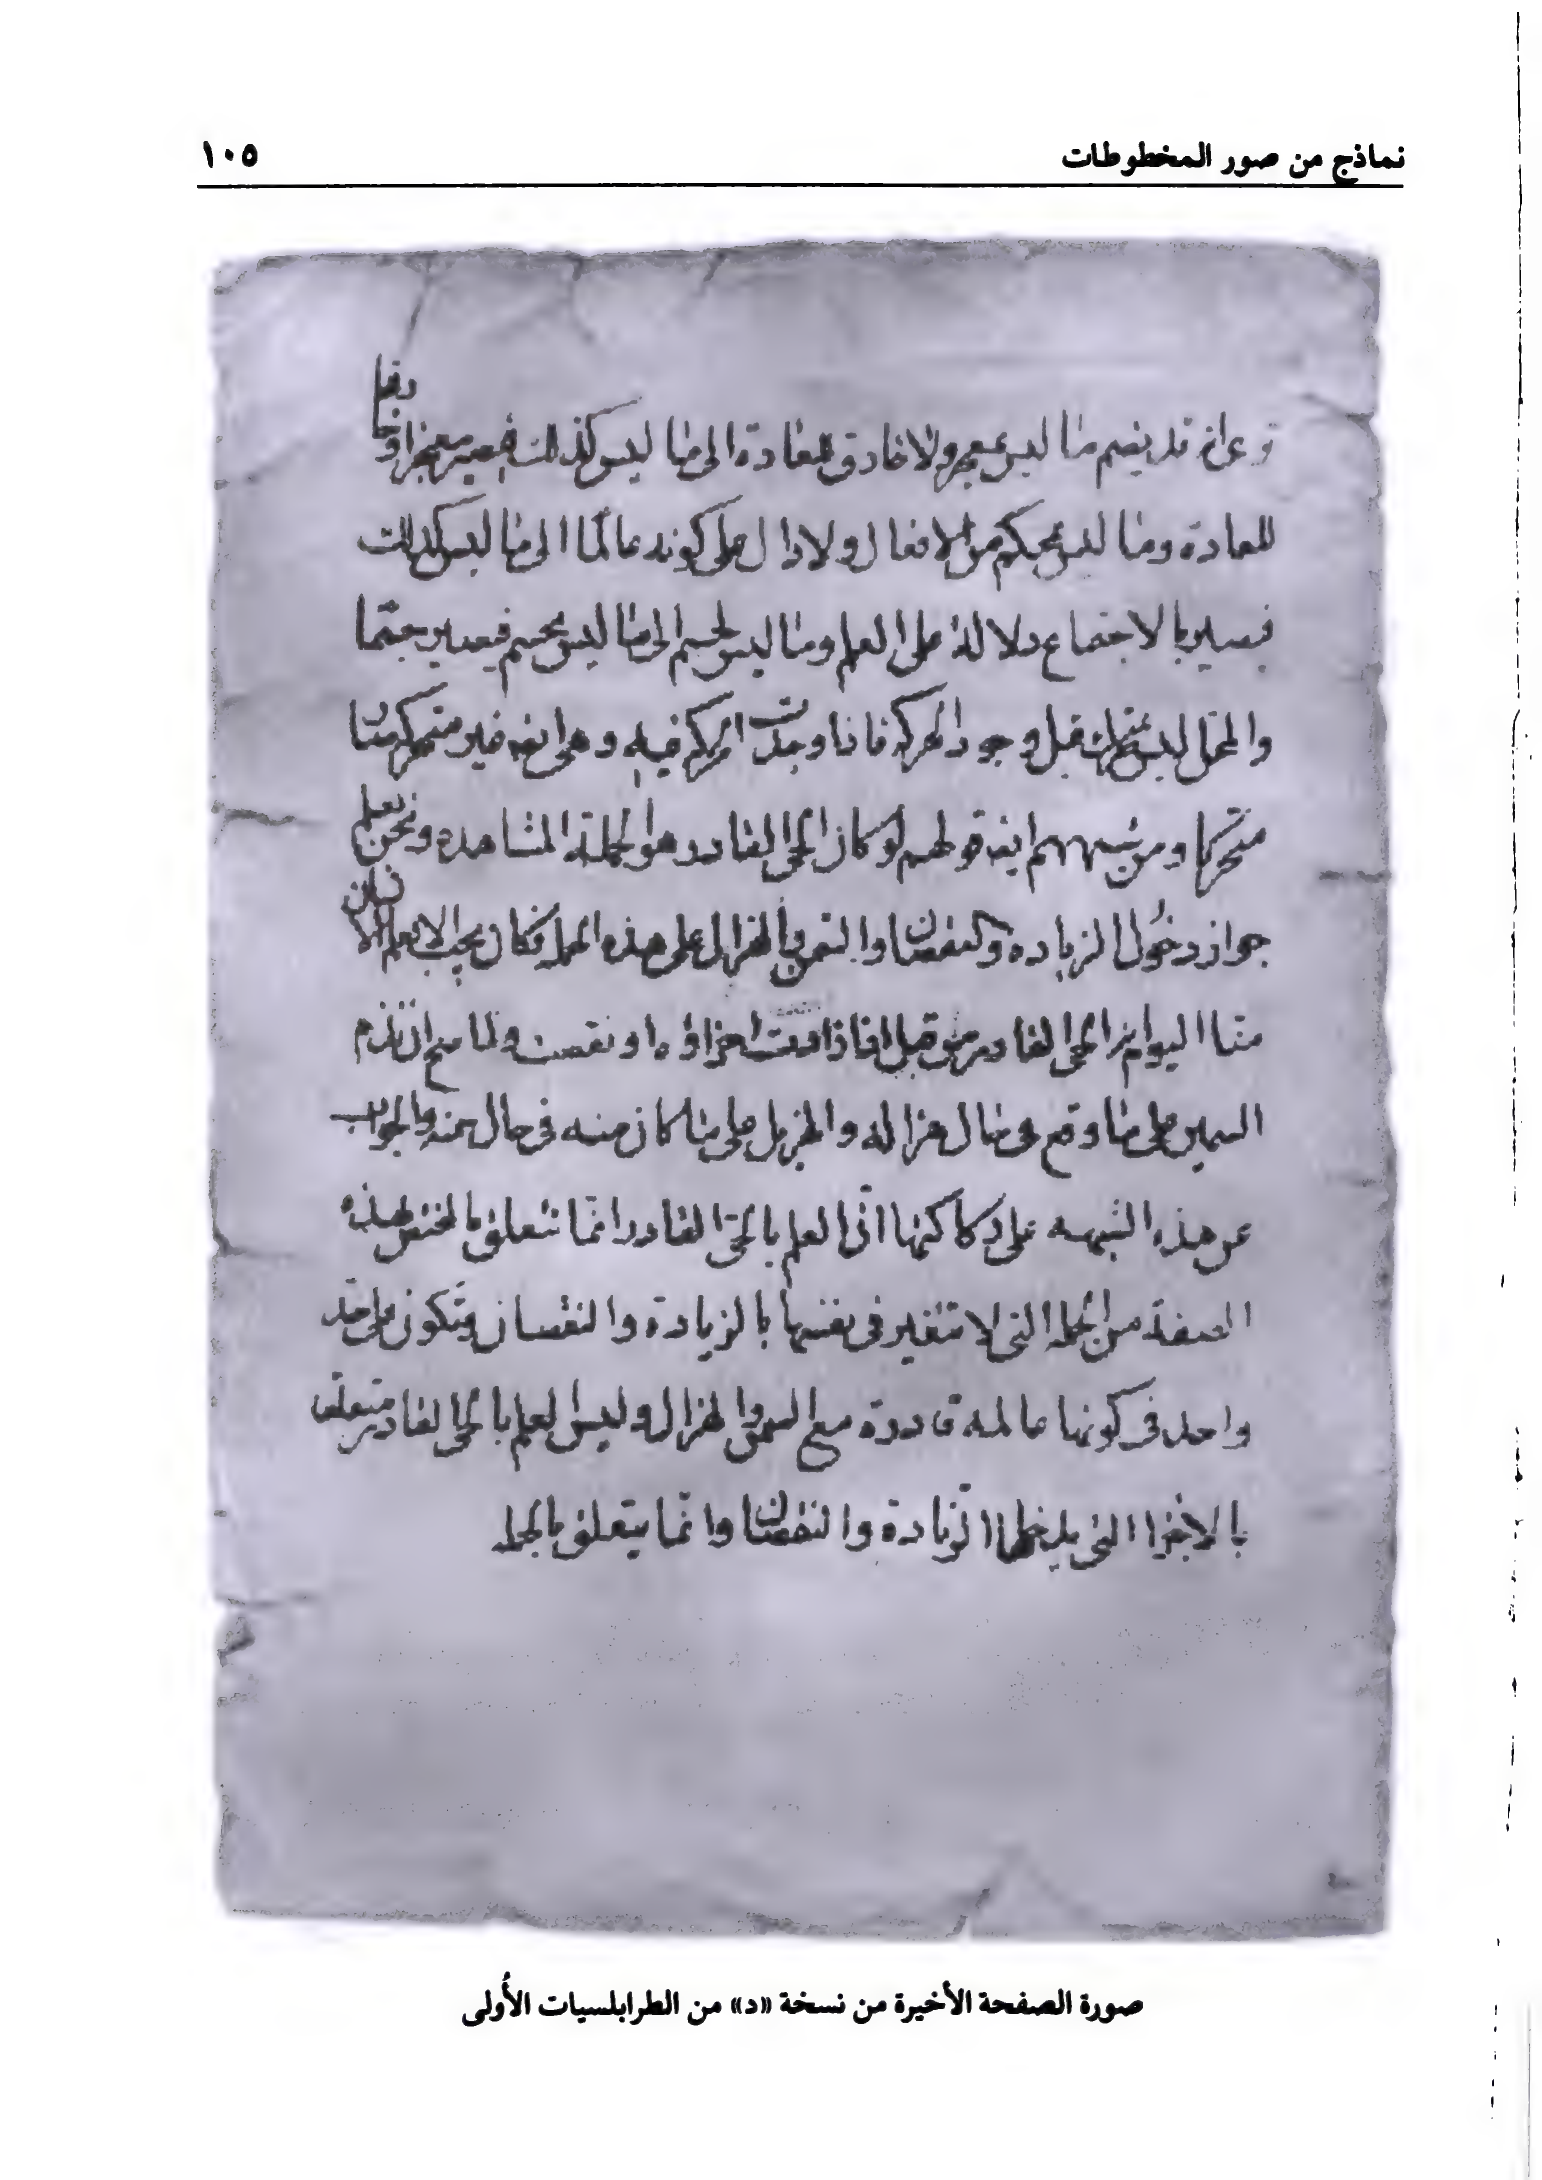 نماذج من صور المخطوطات ١٠٥
قد ينضم ما ليس بمعجز ولا خارق للعادة الى ما ليس كذلك فيصير معجزا وخارقا
للعادة وما ليس بمحكم من الافعال ولا دال على كونه عالما الى ما ليس كذلك
فيصير بالاجتماع دلالة على العلم وما ليس بجسم الى ما ليس بجسم فيصير جسما
والمحل ليس بمتحرك قبل وجود الحركة فاذا وجدت الحركة فيه وهى ايضا غير متحركة صار
متحركا ومن شبههم ايضا قولهم لو كان الحى القادر هو الجملة المشاهدة ونحن نعلم
جواز دخول الزيادة والنقصان والسمن والهزال على هذه الجملة فكان يجب الا نعلم الانسان
منا اليوم الحى القادر من قبل اذا زادت اجزاؤه او نقصت ولما صح ان نذم
السمين على ما وقع فى حال هزاله والهزيل على ما كان منه فى حال سمنه والجواب
عن هذه الشبهه على ركاكتها ان العلم بالحى القادر انما يتعلق بالمختص بهذه
الصفة من الجملة التى لا تتغير فى نفسها بالزيادة والنقصان وتكون على حد
واحد فى كونها عالمة قادرة مع السمن والهزال وليس العلم بالحى القادر متعلقا
بالاجزاء التى يدخلها الزيادة والنقصان وانما يتعلق بالجملة
صورة الصفحة الأخيرة من نسخة «د» من الطرابلسيات الأُولى